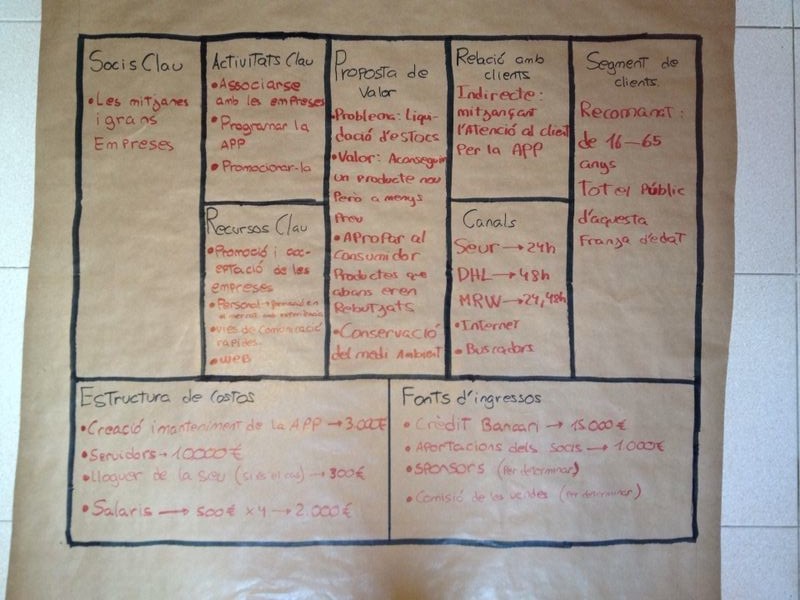 Socis Clau
• Les mitjanes
i grans
Empreses
Activitats Clau
• Associarse
amb les empreses
• Programar la
APP
• Promocionar-la
Recursos Clau
• Promoció i acc-
eptació de les
empreses
• Personal → promoció en
el mercat amb experiència
• vies de comunicació
ràpides.
• WEB
Proposta de
Valor
• Problema: Liqui-
dació d'estocs
• Valor: Aconseguir
un producte nou
Però a menys
Preu
• Apropar al
Consumidor
Productes que
abans eren
Rebutjats
• Conservació
del medi Ambient
Relació amb
clients
Indirecte:
mitjançant
l'Atenció al client
Per la APP
Canals
Seur → 24h
DHL → 48h
MRW → 24,48h
• Internet
• Buscadors
Segment de
clients.
Recomanat:
de 16 - 65
anys
Tot el Públic
d'aquesta
Franja d'edat
Estructura de Costos
• Creació i manteniment de la APP → 3.000€
• Servidors → 10000€
• Lloguer de la seu (si és el cas) → 300€
• Salaris → 500€ x 4 → 2.000€
Fonts d'ingressos
• Crèdit Bancari → 15.000€
• Aportacions dels socis → 1.000€
• Sponsors (Per determinar)
• Comisió de les vendes (Per determinar)